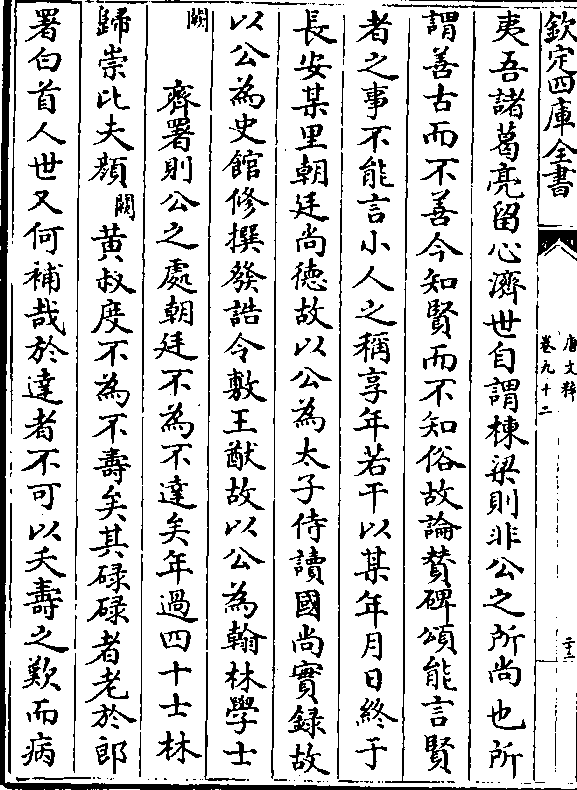 欽定四庫全書
唐文粹
卷九十二
二十三
夷吾諸葛亮留心濟世自謂棟梁則非公之所尚也所
謂善古而不善今知賢而不知俗故論贊碑頌能言賢
者之事不能言小人之稱享年若干以某年月日終于
長安某里朝廷尚德故以公為太子侍讀國尚實録故
以公為史館修撰發誥令敷王猷故以公為翰林學士
闕齊署則公之處朝廷不為不達矣年過四十士林
歸崇比夫顏闕黃叔度不為不壽矣其碌碌者老於郎
署白首人世又何補哉於達者不可以夭壽之歎而病